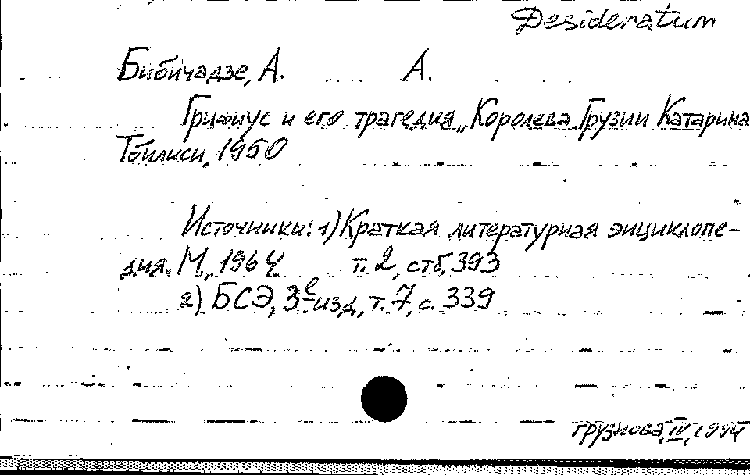 Desideratum
Бибичадзе, А. А.
Грифиус и его трагедия „Королева Грузии Катарина
Тбилиси, 1950
Источники: 1) Краткая литературная энциклопе-
дия. М., 1964 т. 2, стб. 393
2) БСЭ, 3 е изд, т. 7, с. 339
Грузнова, IV,